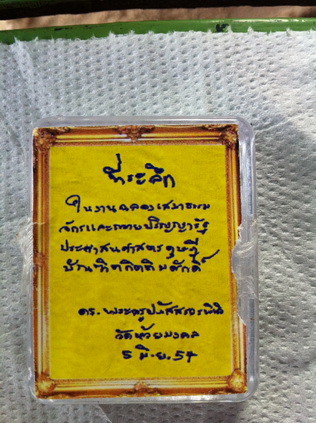 ที่ระลึก
ในงานฉลองเสมาธรรม
จักรและถวายปริญญารัฐ
ประศาสนศาสตรดุษฎี
บัณฑิตกิตติมศักดิ์
ดร. พระครูปภัสสรวรพินิจ
วัดห้วยมงคล
5 มิ.ย. 54